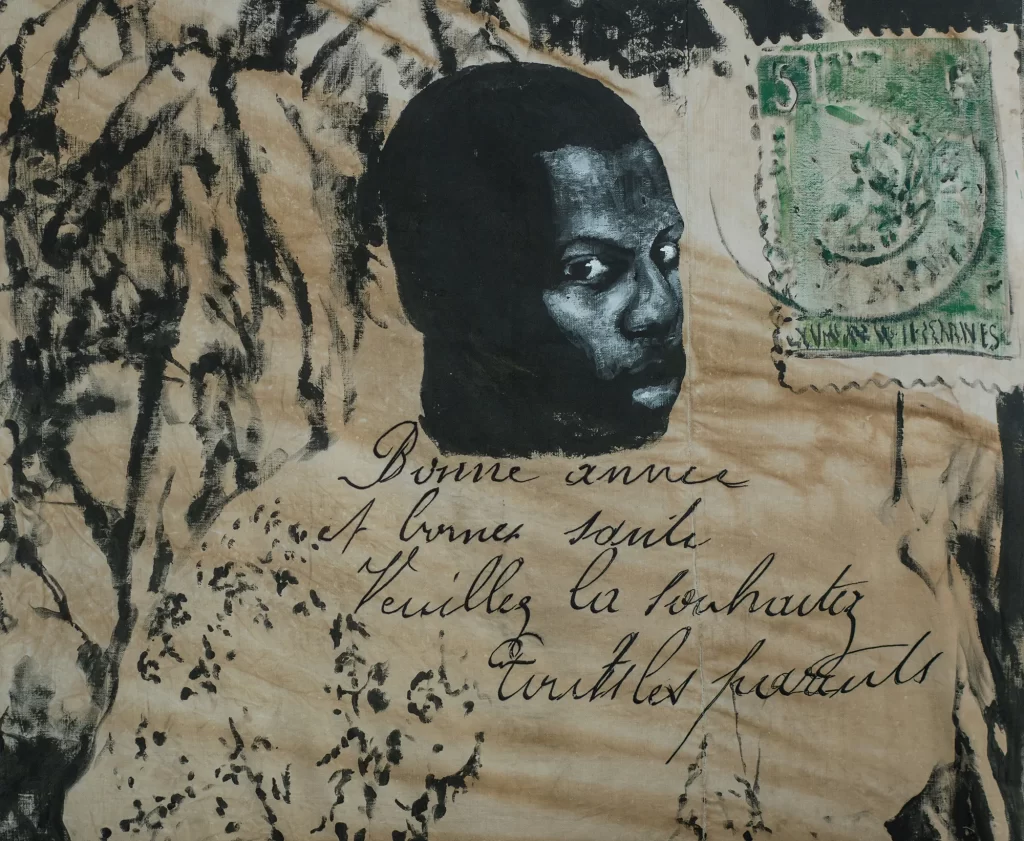 5
Bonne annee
et bonnes sante
Veuillez la souhaitez
Touts les parents